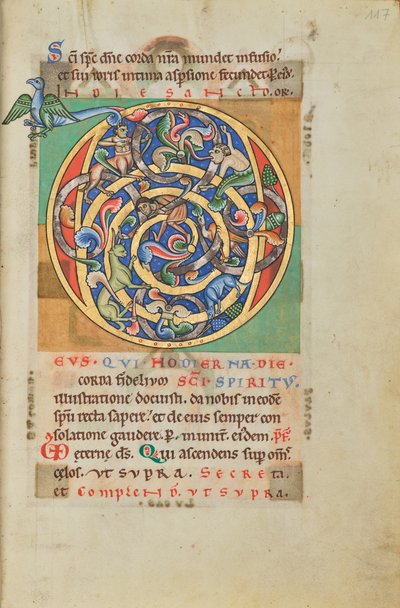 117
Sc̄i sp̄c dn̄e corda nr̄a mundet infusio.
et sui roris intima aspsione fecundet. P. eiꝰđ.
IN DIE SANCTO. OR.
D
EVS. QVI HODIERNA. DIE
corda fidelium SC̄I. SPIRITVS.
illustratione docuisti. da nobis in eode
spū recta sapere. et de eius semper con
solatione gaudere. P. munīt. eiꝰdem. PF.
eterne ds̄. Qui ascendens sup om̄s
celos. VT SUPRA. SECRETA.
et COMPLEND. VT SVPRA.